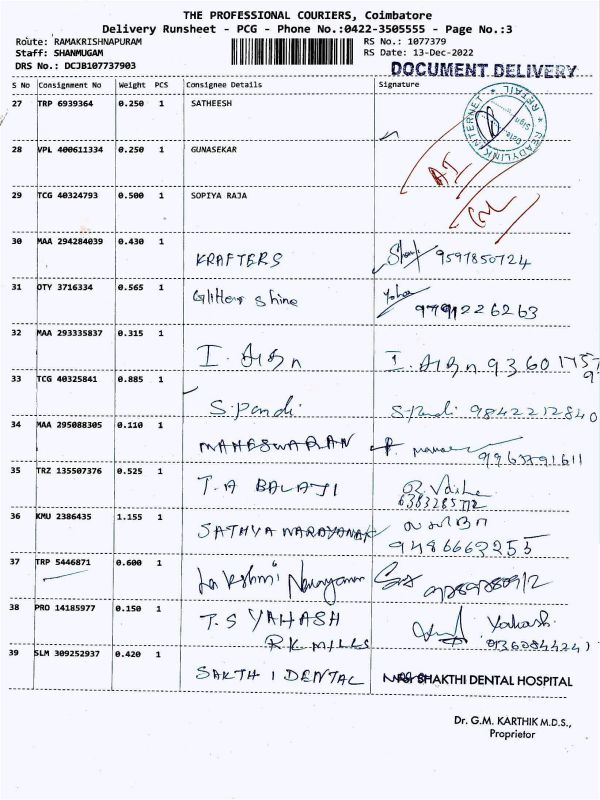 THE PROFESSIONAL COURIERS, Coimbatore
Delivery Runsheet - PCG - Phone No.:0422-3505555 - Page No.:3
Route: RAMAKRISHNAPURAM
Staff: SHANMUGAM
DRS No.: DCJB107737903
RS No.: 1077379
RS Date: 13-Dec-2022
DOCUMENT DELIVERY
S No Consignment No Weight PCS Consignee Details Signature
READYLINK INTERNET RETAIL
Date
Sign
27 TRP 6939364 0.250 1 SATHEESH
28 VPL 400611334 0.250 1 GUNASEKAR
29 TCG 40324793 0.500 1 SOPIYA RAJA
30 MAA 294284039 0.430 1 KRAFTERS 9597850724
31 OTY 3716334 0.565 1 Glitters shine 9791226263
32 MAA 293335837 0.315 1
33 TCG 40325841 0.885 1 S.Pandi S.Pandi 9842212840
34 MAA 295088305 0.110 1 MAHESWARAN
35 TRZ 135507376 0.525 1 T.A BALAJI 6383285772
36 KMU 2386435 1.155 1 SATHYA NARAYONAN 9486663255
37 TRP 5446871 0.600 1 Lakshmi Narayanan
38 PRO 14185977 0.150 1 T.S YAHASH Yahash
R.K MILLS
39 SLM 309252937 0.420 1 SAKTHI DENTAL SHAKTHI DENTAL HOSPITAL
Dr. G.M. KARTHIK M.D.S.,
Proprietor